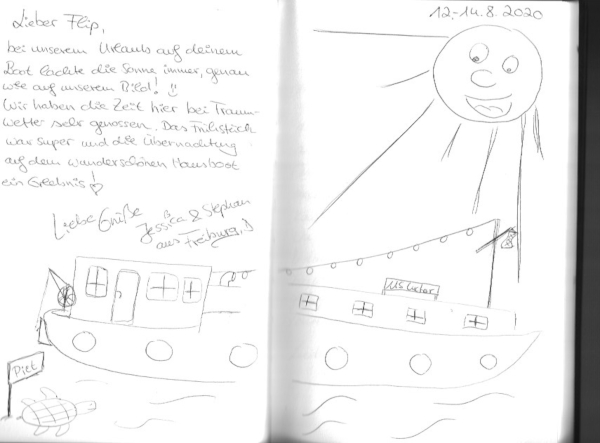 Lieber Flip,
bei unserem Urlaub auf deinem
Boot lachte die Sonne immer, genau
wie auf unserem Bild!
Wir haben die Zeit hier bei Traum-
wetter sehr genossen. Das Frühstück
war super und die Übernachtung
auf dem wunderschönen Hausboot
ein Erlebnis!
Liebe Grüße
Jessica & Stephan
aus Freiburg
12.-14.8.2020
Piet